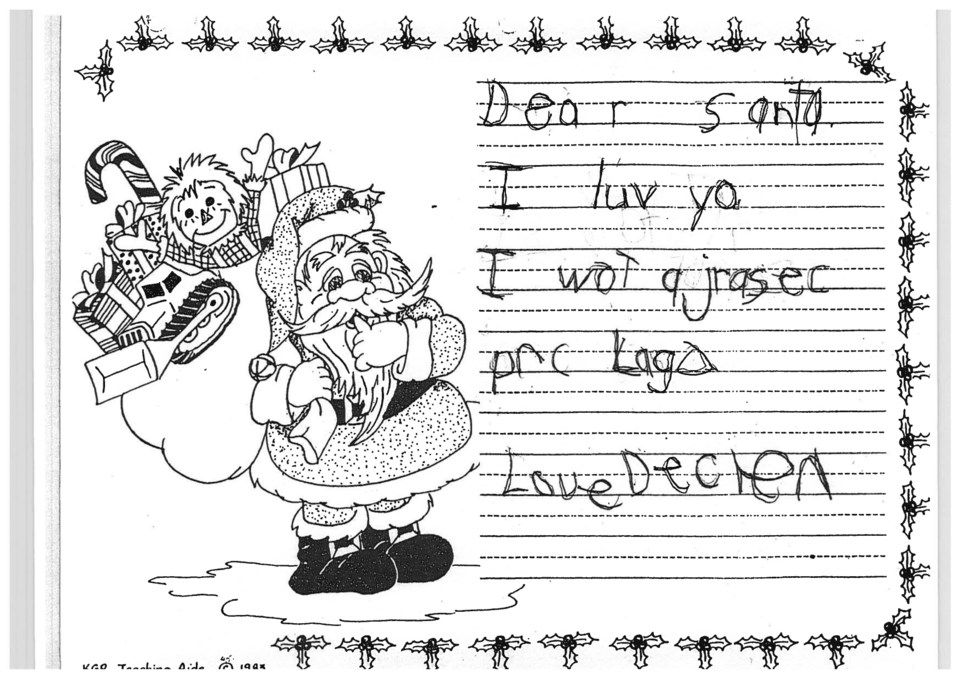 Dear Santa.
I luv ya
I wot a jrasec
prc Laga
Love Declen
KGP Teaching Aids © 1993